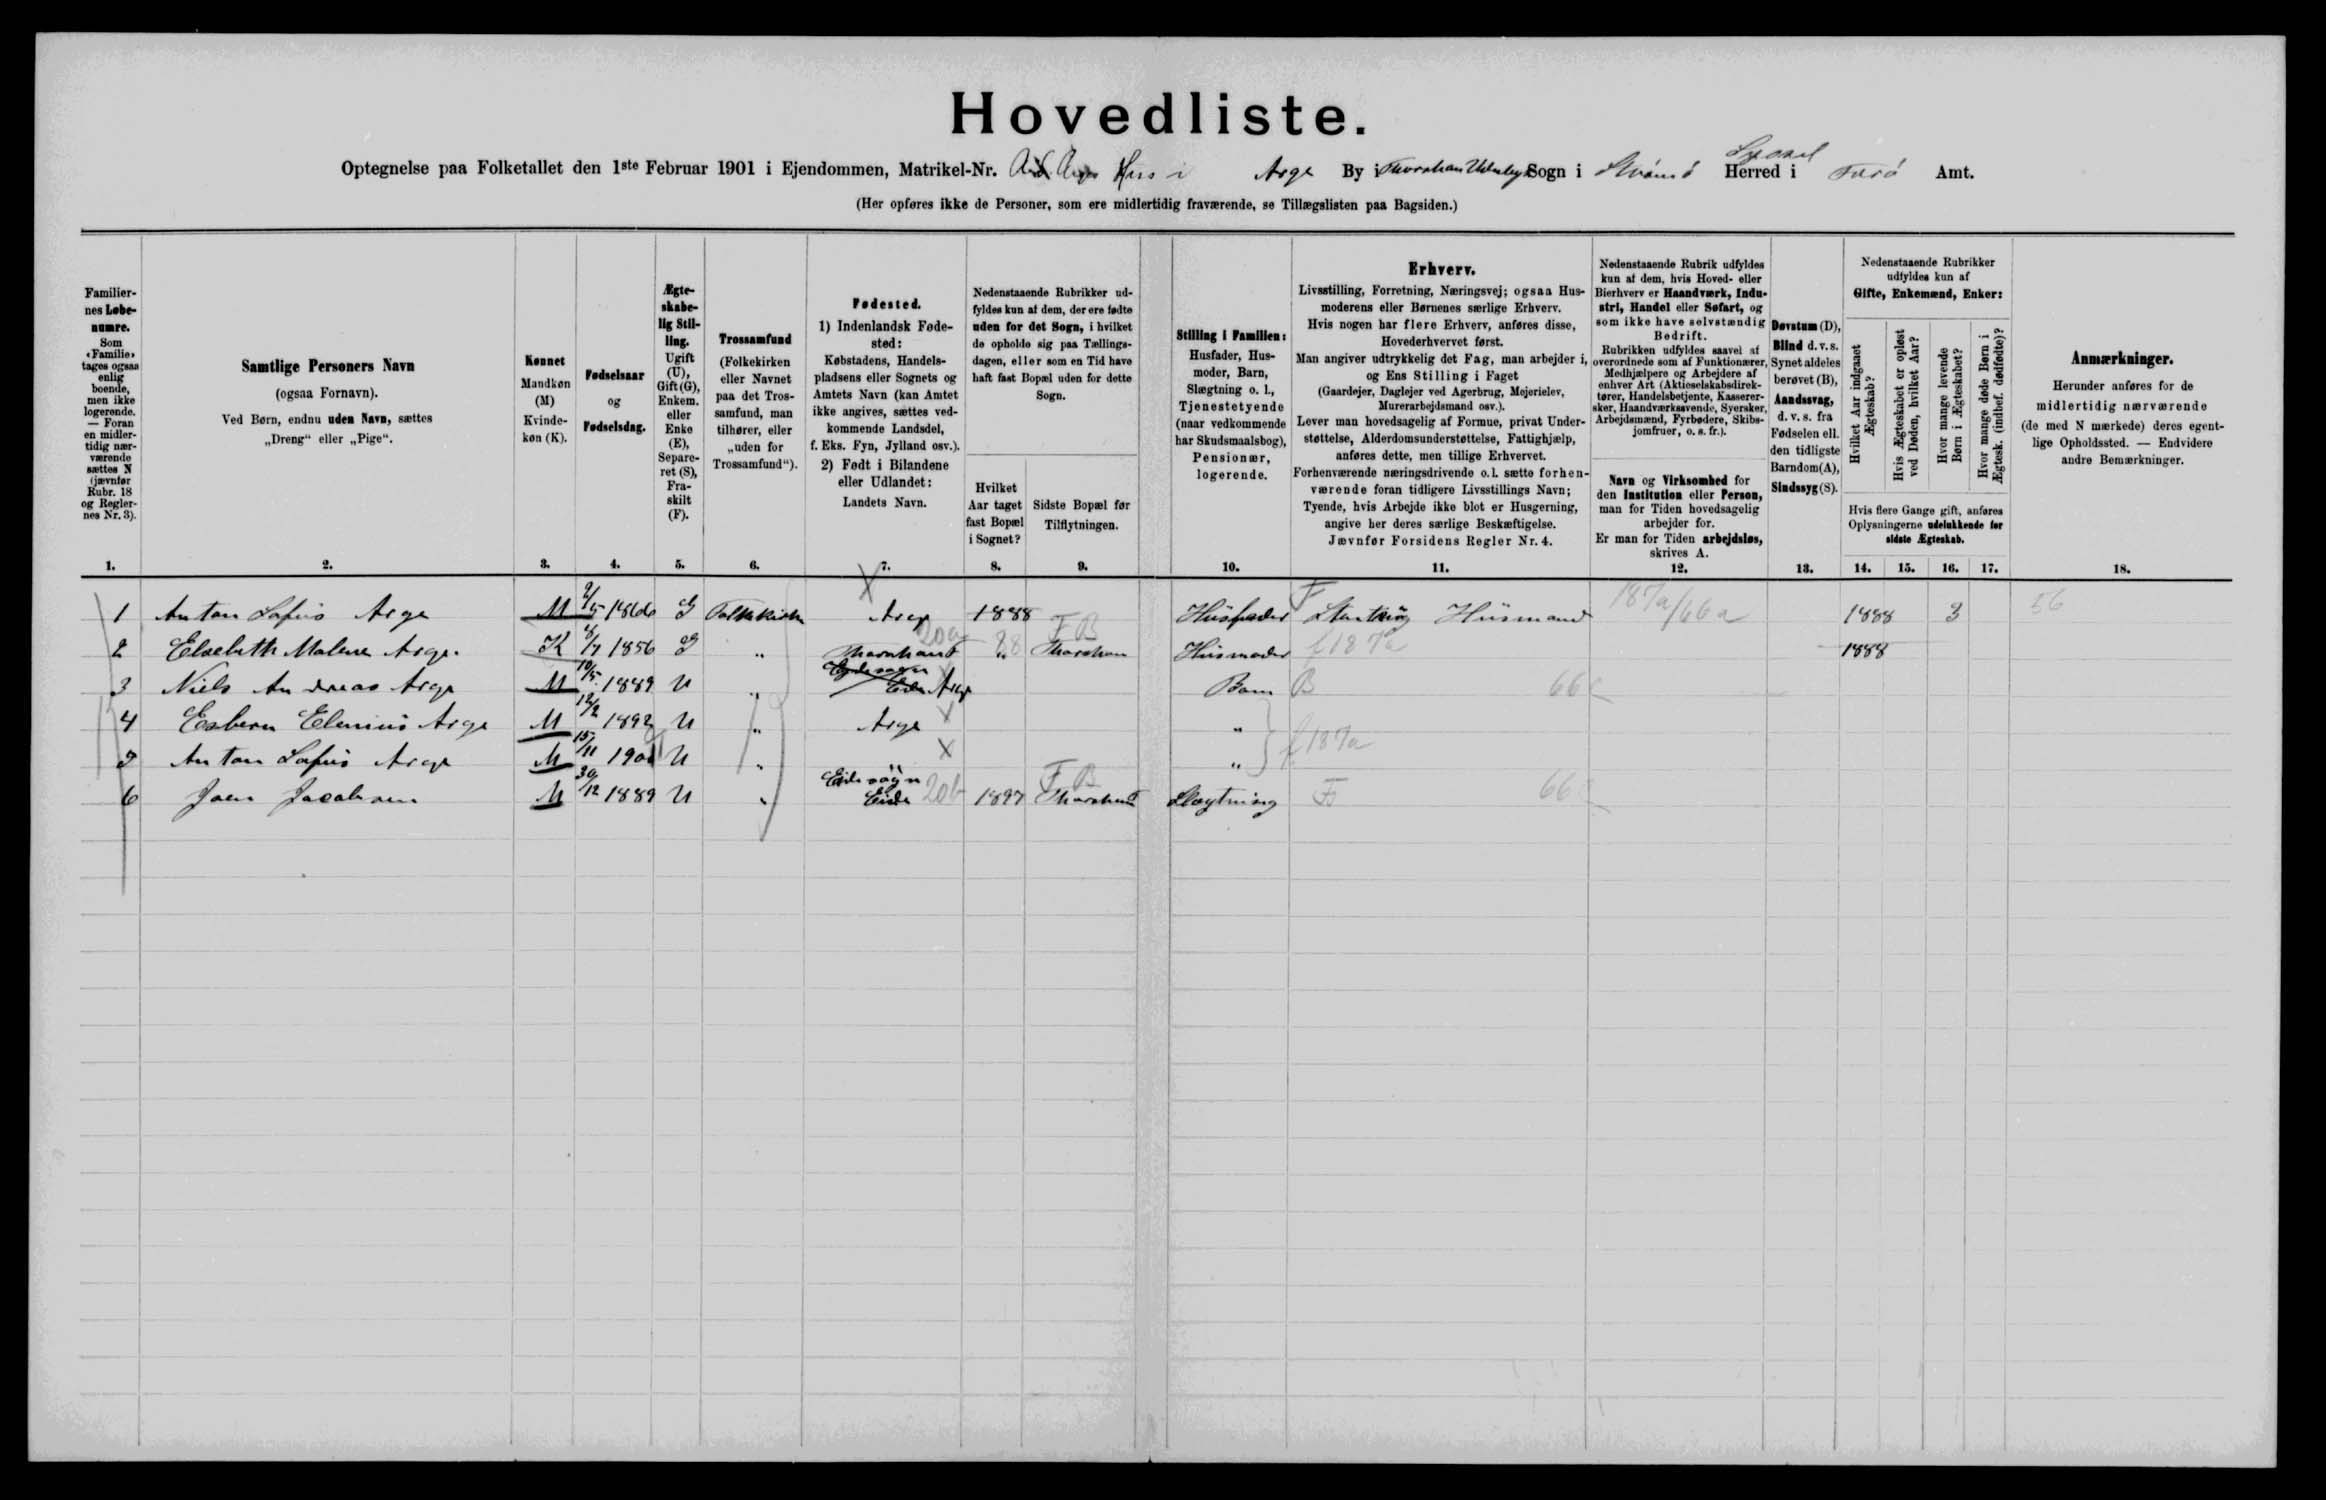 Hovedliste.
Optegnelse paa Folketallet den 1ste Februar 1901 i Ejendommen, Matrikel-Nr. Hus i Arge By i Thorshavn Udenbys Sogn i Strömö Syssel Herred i Færö Amt.
(Her opføres ikke de Personer, som ere midlertidig fraværende, se Tillægslisten paa Bagsiden.)
Familier-
nes Løbe-
numre.
Som
«Familie»
tages ogsaa
enlig
boende,
men ikke
logerende.
— Foran
en midler-
tidig nær-
værende
sættes N
(jævnfør
Rubr. 18
og Regler-
nes Nr. 3).
Samtlige Personers Navn
(ogsaa Fornavn).
Ved Børn, endnu uden Navn, sættes
„Dreng“ eller „Pige“.
Kønnet
Mandkøn
(M)
Kvinde-
køn (K).
Fødselsaar
og
Fødselsdag.
Ægte-
skabe-
lig Stil-
ling.
Ugift
(U),
Gift (G),
Enkem.
eller
Enke
(E),
Separe-
ret (S),
Fra-
skilt
(F).
Trossamfund
(Folkekirken
eller Navnet
paa det Tros-
samfund, man
tilhører, eller
„uden for
Trossamfund“).
Fødested.
1) Indenlandsk Føde-
sted:
Købstadens, Handels-
pladsens eller Sognets og
Amtets Navn (kan Amtet
ikke angives, sættes ved-
kommende Landsdel,
f. Eks. Fyn, Jylland osv.).
2) Født i Bilandene
eller Udlandet:
Landets Navn.
Nedenstaaende Rubrikker ud-
fyldes kun af dem, der ere fødte
uden for det Sogn, i hvilket
de opholde sig paa Tællings-
dagen, eller som en Tid have
haft fast Bopæl uden for dette
Sogn.
Hvilket
Aar taget
fast Bopæl
i Sognet?
Sidste Bopæl før
Tilflytningen.
Stilling i Familien:
Husfader, Hus-
moder, Barn,
Slægtning o. l.,
Tjenestetyende
(naar vedkommende
har Skudsmaalsbog),
Pensionær,
logerende.
Erhverv.
Livsstilling, Forretning, Næringsvej; ogsaa Hus-
moderens eller Børnenes særlige Erhverv.
Hvis nogen har flere Erhverv, anføres disse,
Hovederhvervet først.
Man angiver udtrykkelig det Fag, man arbejder i,
og Ens Stilling i Faget
(Gaardejer, Daglejer ved Agerbrug, Mejerielev,
Murerarbejdsmand osv.).
Lever man hovedsagelig af Formue, privat Under-
støttelse, Alderdomsunderstøttelse, Fattighjælp,
anføres dette, men tillige Erhvervet.
Forhenværende næringsdrivende o. l. sætte forhen-
værende foran tidligere Livsstillings Navn;
Tyende, hvis Arbejde ikke blot er Husgerning,
angive her deres særlige Beskæftigelse.
Jævnfør Forsidens Regler Nr. 4.
Nedenstaaende Rubrik udfyldes
kun af dem, hvis Hoved- eller
Bierhverv er Haandværk, Indu-
stri, Handel eller Søfart, og
som ikke have selvstændig
Bedrift.
Rubrikken udfyldes saavel af
overordnede som af Funktionærer,
Medhjælpere og Arbejdere af
enhver Art (Aktieselskabsdirek-
tører, Handelsbetjente, Kasserer-
sker, Haandværkssvende, Syersker,
Arbejdsmænd, Fyrbødere, Skibs-
jomfruer, o. s. fr.).
Navn og Virksomhed for
den Institution eller Person,
man for Tiden hovedsagelig
arbejder for.
Er man for Tiden arbejdsløs,
skrives A.
Døvstum (D),
Blind d. v. s.
Synet aldeles
berøvet (B),
Aandssvag,
d. v. s. fra
Fødselen ell.
den tidligste
Barndom (A),
Sindssyg (S).
Nedenstaaende Rubrikker
udfyldes kun af
Gifte, Enkemænd, Enker:
Hvilket Aar indgaaet
Ægteskab?
Hvis Ægteskabet er opløst
ved Døden, hvilket Aar?
Hvor mange levende
Børn i Ægteskabet?
Hvor mange døde Børn i
Ægtesk. (indbef. dødfødte)?
Hvis flere Gange gift, anføres
Oplysningerne udelukkende for
sidste Ægteskab.
Anmærkninger.
Herunder anføres for de
midlertidig nærværende
(de med N mærkede) deres egent-
lige Opholdssted. — Endvidere
andre Bemærkninger.
1. 2. 3. 4. 5. 6. 7. 8. 9. 10. 11. 12. 13. 14. 15. 16. 17. 18.
1 Anton Lafius Arge M G Folkekirken Arge 1888 Husfader F Husmand 187a/66a 1888 3 56
2 Elsebeth Malene Arge K 1856 G " Thorshavn 20a " 88 F B Thorshavn Husmoder f 187a 1888
3 Niels Andreas Arge M 10/5 1889 U " Arge Barn B 66
4 Esbern Elenius Arge M 12/2 1892 U " Arge "
5 Anton Lafius Arge M 15/11 U " " f 187a
6 Joen Jacobsen M 30/12 1889 U " Eide sogn Eide 20b 1897 F B Thorshavn Slægtning F 66